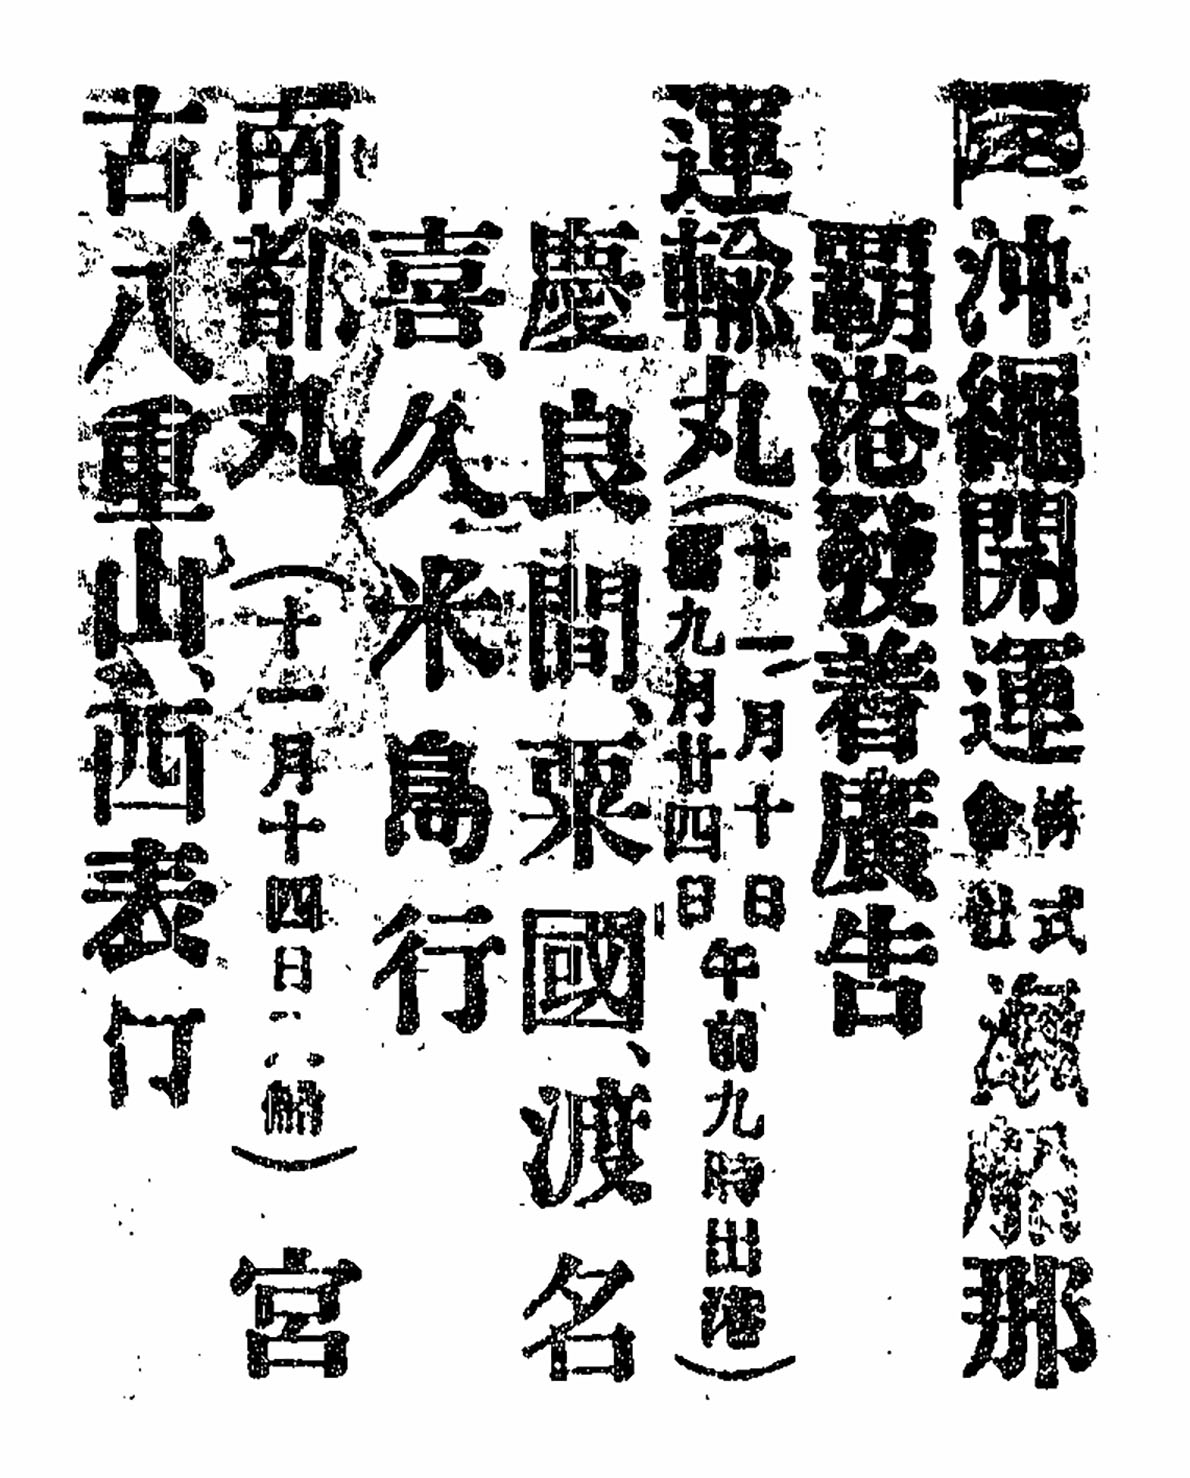 沖繩開運株式會社滊船那
覇港發着廣告
運輸丸（十一月十日
舊九月廿四日午前九時出港）
慶良間、粟國、渡名
喜、久米島行
南都丸（十一月十四日）宮
古八重山、西表行